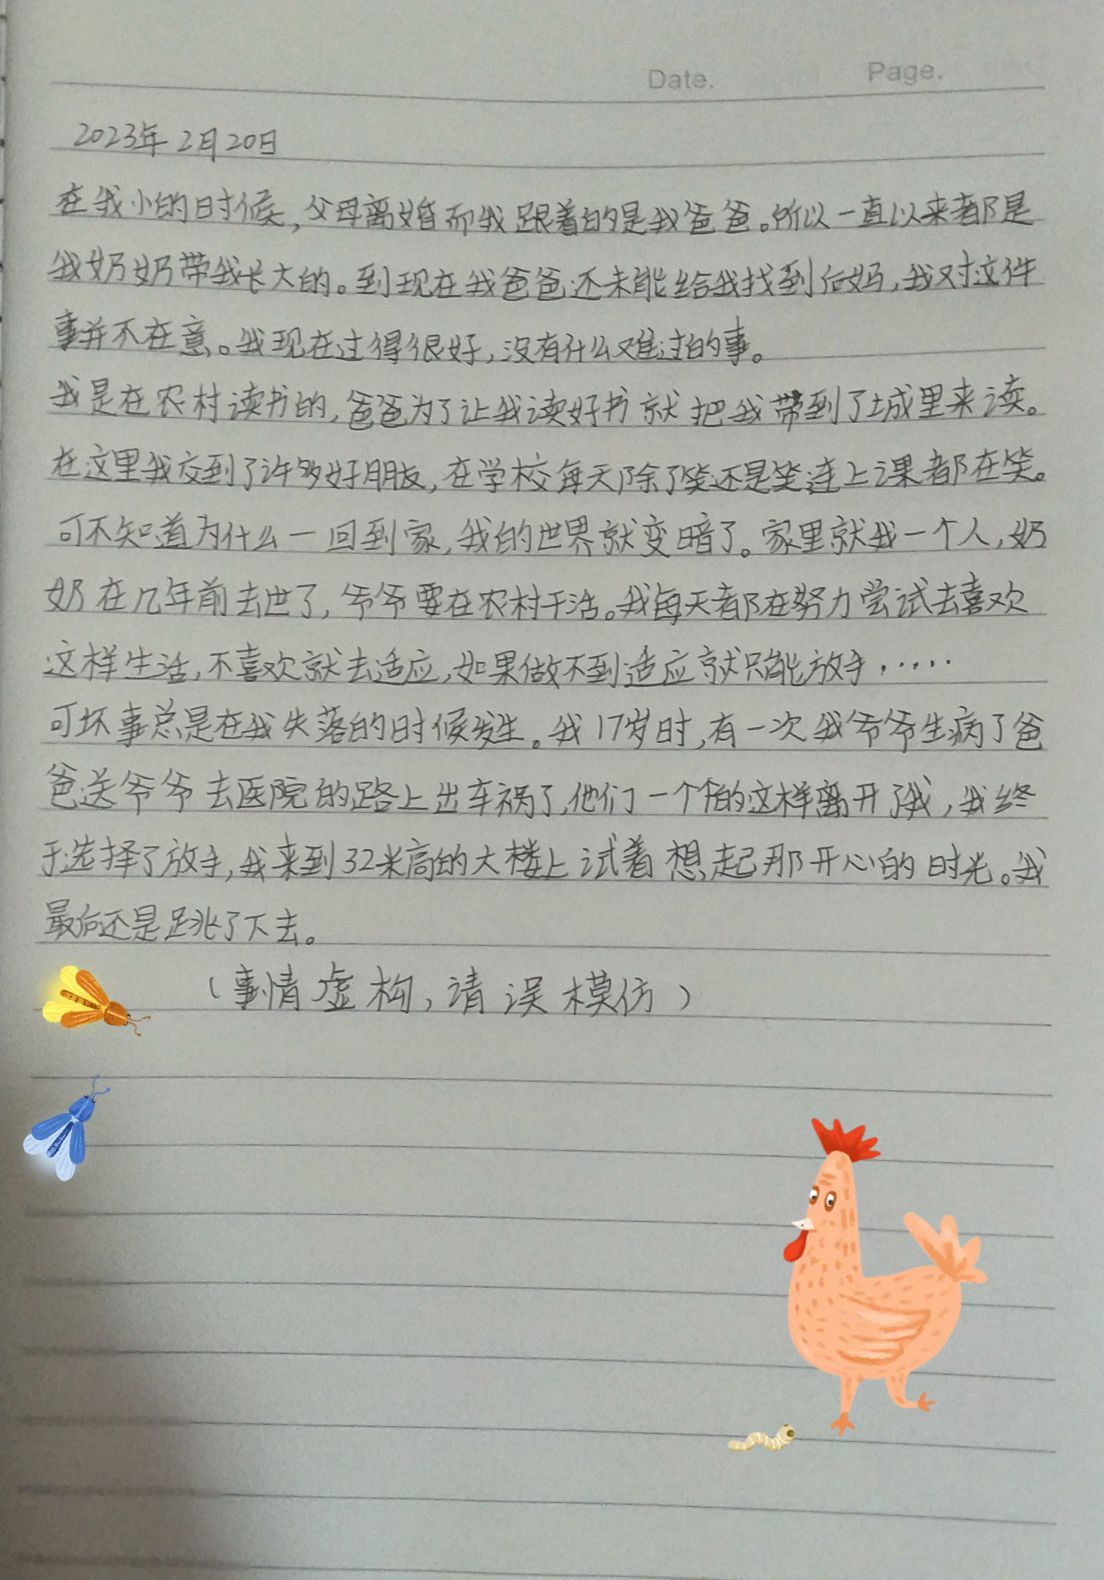 Date.
Page.
2023年2月20日
在我小的时候,父母离婚而我跟着的是我爸爸。所以一直以来都是
我奶奶带我长大的。到现在我爸爸还未能给我找到后妈,我对这件
事并不在意。我现在过得很好,没有什么难过的事。
我是在农村读书的,爸爸为了让我读好书就把我带到了城里来读。
在这里我交到了许多好朋友,在学校每天除了笑还是笑连上课都在笑。
可不知道为什么一回到家,我的世界就变暗了。家里就我一个人,奶
奶在几年前去世了,爷爷要在农村干活。我每天都在努力尝试去喜欢
这样生活,不喜欢就去适应,如果做不到适应就只能放手·····
可坏事总是在我失落的时候发生。我17岁时,有一次我爷爷生病了爸
爸送爷爷去医院的路上出车祸了,他们一个个的这样离开了我,我终
于选择了放手,我来到32米高的大楼上试着想起那开心的时光。我
最后还是跳了下去。
(事情虚构,请误模仿)